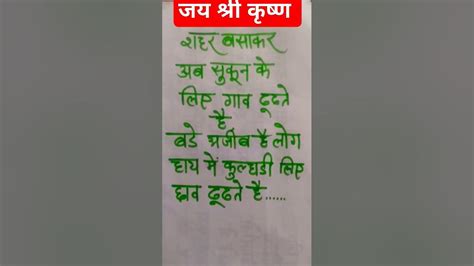 जय श्री कृष्ण
शहर बसाकर
अब सुकून के
लिए गाव ढूढते
है
बडे अजीब है लोग
हाथ मे कुल्हाडी लिए
छाव ढूढते है......